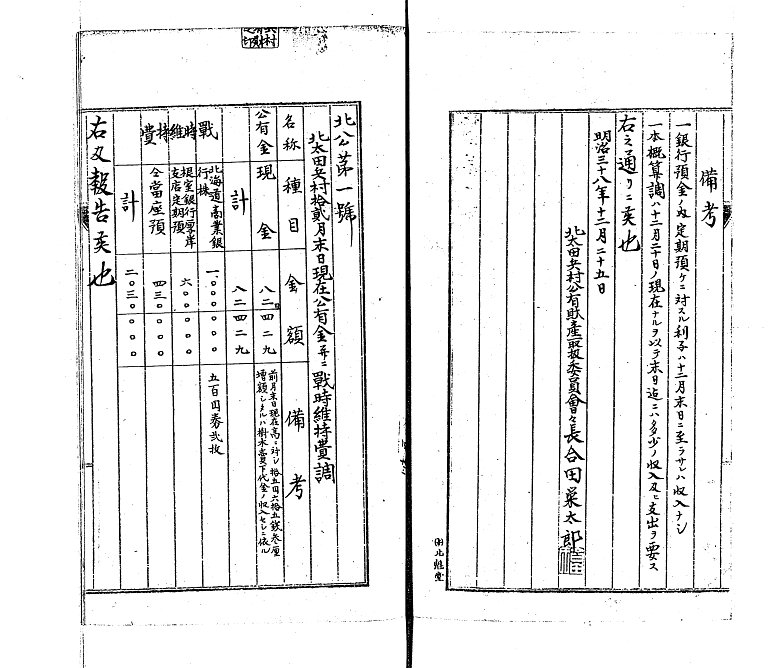 備考
一銀行預金ノ内定期預ケニ対スル利子ハ十二月末日ニ至ラサレハ収入ナシ
一本概算調ハ十二月二十日ノ現在ナルヲ以テ末日迄ニハ多少ノ収入及ヒ支出ヲ要ス
右之通リニ候也
明治三十八年十二月二十五日
北太田兵村公有財産取扱委員會々長合田栄太郎
北公第一號
北太田兵村拾貳月末日現在公有金并ニ戰時維持費調
名称 種目 金額 備考
公有金 現金 八二四二九 前月末日現在高ニ対シ拾五円六拾五銭叁厘増額シタルハ樹木売買下代金ノ収入セシニ依ル
計 八二四二九
戰時維持費 北海道商業銀行株 一〇〇〇〇〇 五百円券弐枚
根室銀行厚岸支店定期預 六〇〇〇〇
仝當座預 四三〇〇〇
計 二〇三〇〇〇
右及報告候也